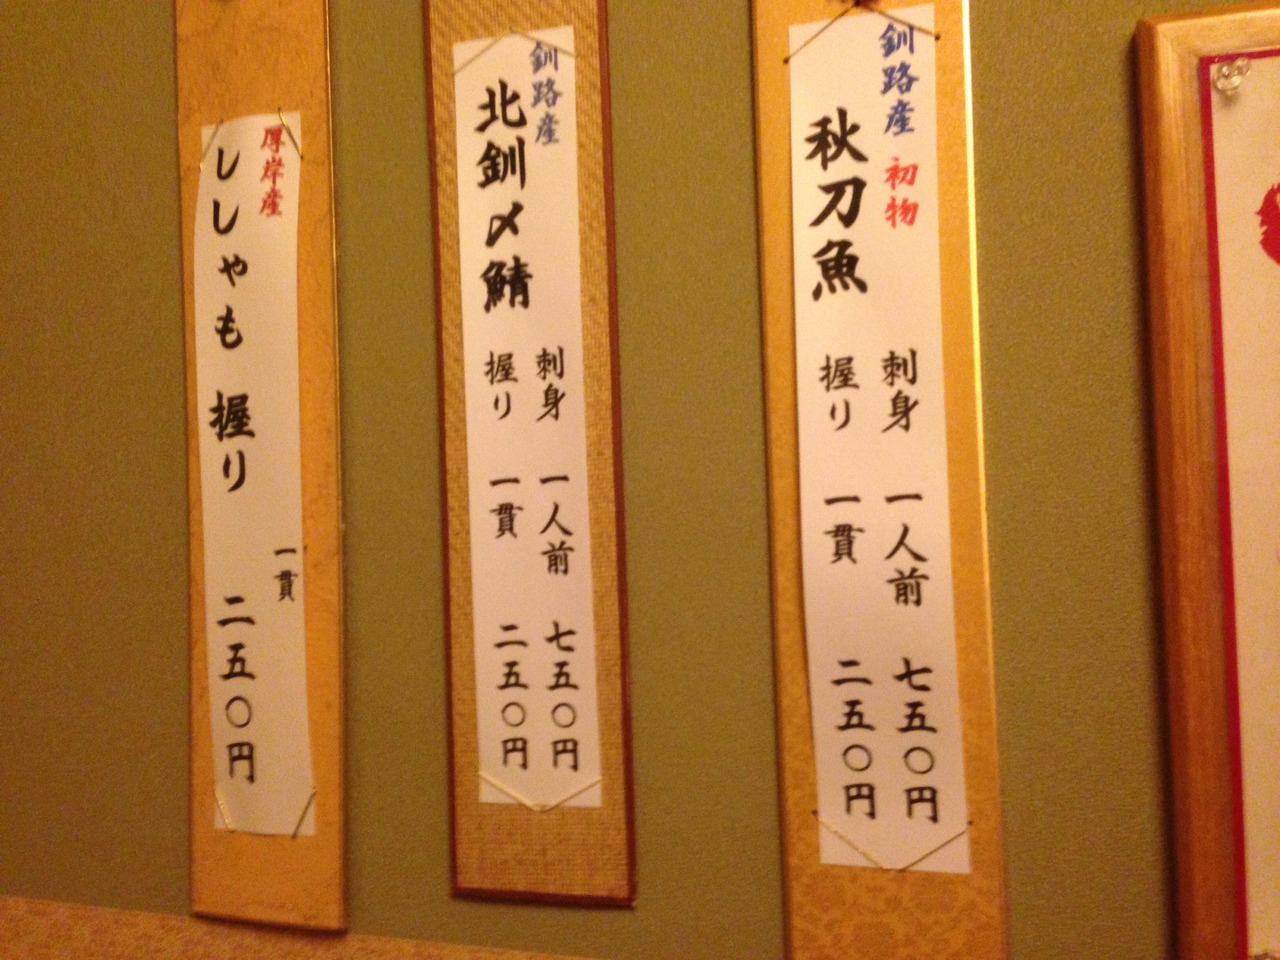 釧路産 初物
秋刀魚
刺身 一人前 七五〇円
握り 一貫 二五〇円
釧路産
北釧〆鯖
刺身 一人前 七五〇円
握り 一貫 二五〇円
厚岸産
ししゃも 握り
一貫
二五〇円